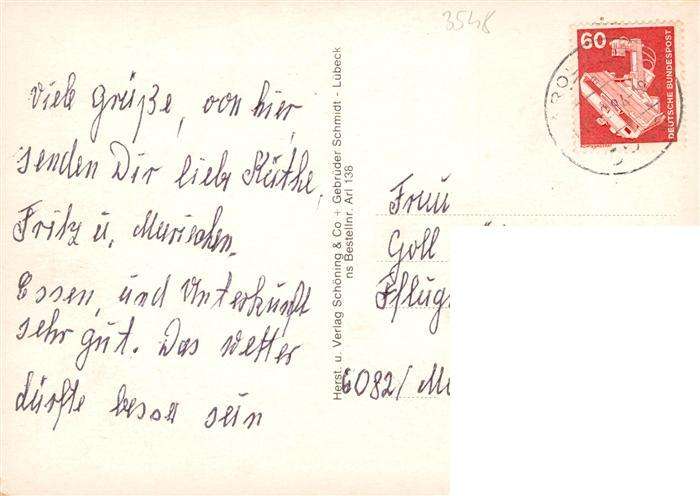 3548
60
DEUTSCHE BUNDESPOST
Viele Grüße, von hier,
senden Dir liebe Käthe,
Fritz u. Mariechen.
Essen, und Unterkunft
sehr gut. Das Wetter
dürfte besser sein
Herst. u. Verlag Schöning & Co + Gebrüder Schmidt - Lübeck
ns Bestellnr. Arl 136
Frau
Goll
Pflug
6082/ Mö